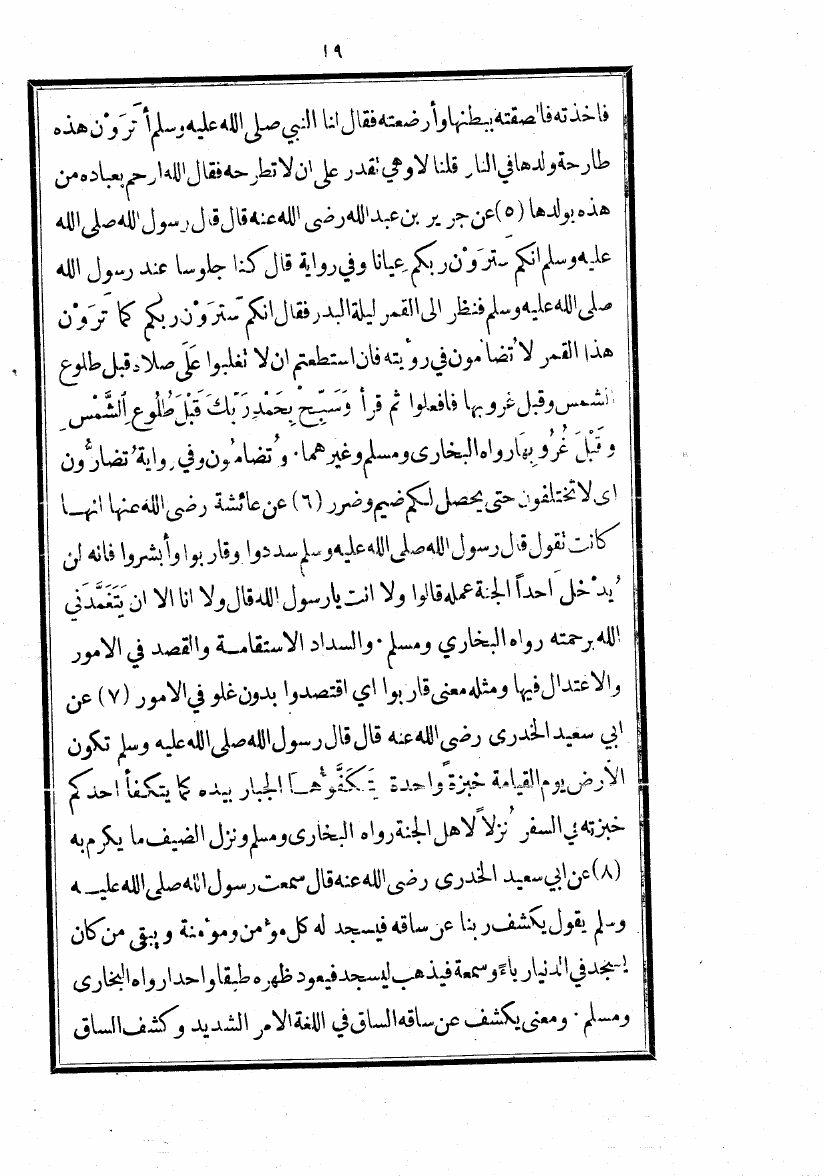 ١٩
فاخذته فالصقته ببطنها وأرضعته فقال لنا النبي صلى الله عليه وسلم أَتَرَوْن هذه
طارحة ولدها في النار قلنا لا وهي تقدر على ان لا تطرحه فقال الله ارحم بعباده من
هذه بولدها (٥) عن جرير بن عبد الله رضى الله عنه قال قال رسول الله صلى الله
عليه وسلم انكم سَتَرَوْن ربكم عِيانا وفي رواية قال كنا جلوسا عند رسول الله
صلى الله عليه وسلم فنظر الى القمر ليلة البدر فقال انكم سَتَرَوْن ربكم كما تَرَوْن
هذا القمر لا تُضامون في رؤيته فان استطعتم ان لا تغلبوا عَلَى صلاة قبل طلوع
الشمس وقبل غروبها فافعلوا ثم قرأ وَسَبِّحْ بِحَمْدِ رَبِّكَ قَبْلَ طُلُوعِ الشَّمْسِ
وَقَبْلَ غُرُوبِهَا رواه البخارى ومسلم وغيرهما . وتُضامُون وفي رواية تُضارُّون
اى لا تختلفون حتى يحصل لكم ضيم وضرر (٦) عن عائشة رضى الله عنها انها
كانت تقول قال رسول الله صلى الله عليه وسلم سددوا وقاربوا وأبشروا فانه لن
يُدْخل احداً الجنة عمله قالوا ولا انت يا رسول الله قال ولا انا الا ان يَتَغَمَّدَني
الله برحمته رواه البخاري ومسلم . والسداد الاستقامة والقصد في الامور
والاعتدال فيها ومثله معنى قاربوا اي اقتصدوا بدون غلو في الامور (٧) عن
ابي سعيد الخدرى رضى الله عنه قال قال رسول الله صلى الله عليه وسلم تكون
الأرض يوم القيامة خبزةً واحدة يَتَكَفَّؤُها الجبار بيده كما يتكفأ احدكم
خبزته في السفر نُزلاً لاهل الجنة رواه البخارى ومسلم ونزل الضيف ما يكرم به
(٨) عن ابي سعيد الخدرى رضى الله عنه قال سمعت رسول الله صلى الله عليه
وسلم يقول يكشف ربنا عن ساقه فيسجد له كل مؤمن ومؤمنة ويبقى من كان
يسجد في الدنيا رياءً وسمعة فيذهب ليسجد فيعود ظهره طبقا واحدا رواه البخارى
ومسلم . ومعنى يكشف عن ساقه الساق في اللغة الامر الشديد وكشف الساق